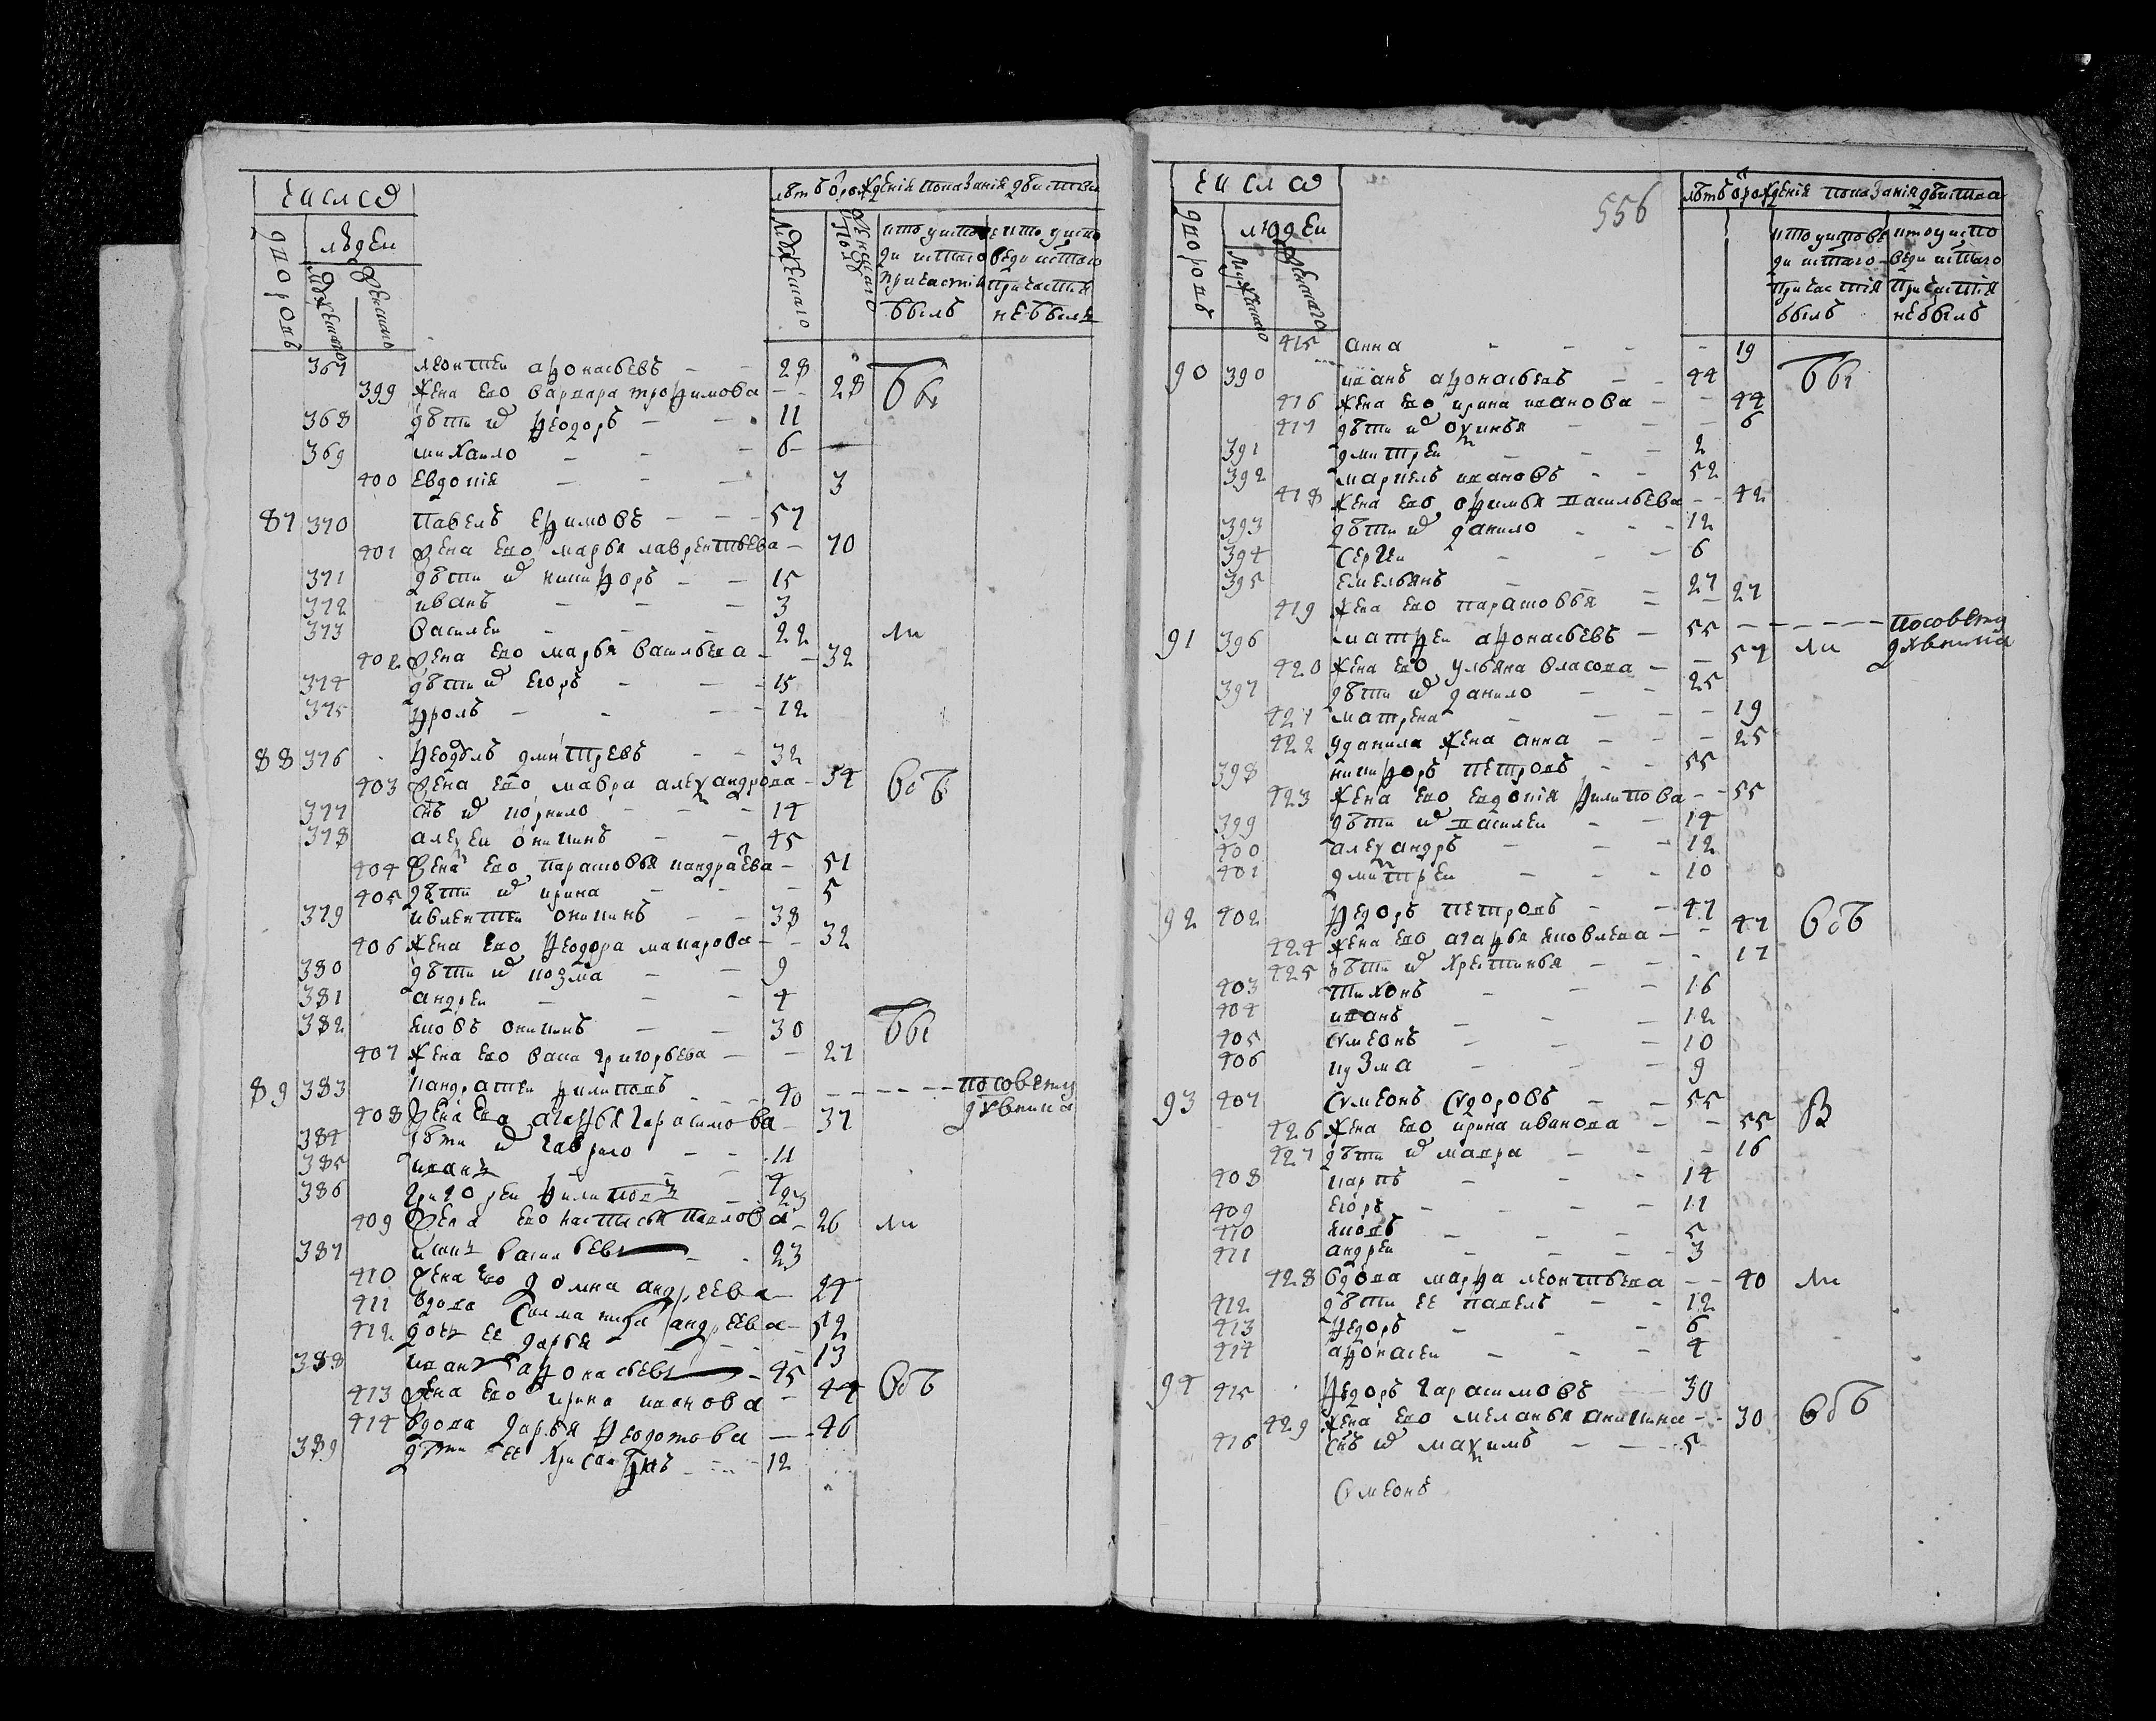 числа
дворовъ
людеи
мужеска
женска
лѣтъ ѿ рождения
показания действа
мужескаго
женскаго полу
кто у исповеди и стаго причастия былъ
кто у исповеди и стаго причастия не былъ
367 леонтеи афонасьевъ 28
399 жена ево варвара трофимова 28 бы
368 дѣти их ѳеодоръ 11
369 михаило 6
400 евдокия 3
87 370 павелъ ефимовъ 57
401 жена ево марья лаврентьева 70
371 дѣти их никифоръ 15
372 иванъ 3
373 василеи 22 ли
402 жена ево марья васильева 32
374 дѣти их егоръ 15
375 фролъ 12
88 376 ѳеодоръ дмитревъ 32
403 жена ево мавра алеѯандрова 34 воъ
377 снъ их корнило 14
378 алеѯеи оникинъ 45
404 жена ево парасковья кандраева 51
405 дѣти их ирина 5
379 ивлентеи оникинъ 38
406 жена ево ѳеодора макарова 32
380 дѣти их козма 9
381 андреи 4
382 яковъ оникинъ 30 бы
407 жена ево васа григорьева 27
89 383 кандратеи филиповъ 40 по совету дхвника
408 жена ево агафья гарасимова 37
384 дѣти их гаврило 11
385 иванъ 4
386 григореи филиповъ 23
409 жена ево настасья павлова 26 ли
387 василевъ 23
410 жена ево домна андреева 24
411 вдова андреева 52
412 дочь ее дарья 13
388 иванъ афонасьевъ 45
413 жена ево ирина иванова 44 воъ
414 вдова дарья ѳеодотова 46
389 дѣти ее хрисанфъ 12
556
числа
дворовъ
людеи
мужеска
женскаго
лѣтъ ѿ рождения
показания действа
кто у исповеди и стаго причастия былъ
кто у исповеди и стаго причастия не былъ
415 анна 19
90 390 иванъ афонасьевъ 44 бы
416 жена ево ирина иванова 44
417 дѣти их оѯинья 6
391 дмитреи 2
392 маркелъ ивановъ 52
418 жена ево офимья васильева 42
393 дѣти их данило 12
394 сергеи 6
395 емельянъ 27
419 жена ево парасковья 27
91 396 матфеи афонасьевъ 55 по совету дхвника
420 жена ево ульяна власова 57 ли
397 дѣти их данило 25
421 матрена 19
422 у данила жена анна 25
398 никифоръ петровъ 55
423 жена ево евдокия филипова 55
399 дѣти их василеи 14
400 алеѯандръ 12
401 дмитреи 10
92 402 ѳедоръ петровъ 47
424 жена ево агафья яковлева 47 воъ
425 дѣти их христинья 17
403 тихонъ 16
404 иванъ 12
405 сумеонъ 10
406 кузма 9
93 407 сумеонъ сидоровъ 55
426 жена ево ирина иванова 55 в
427 дѣти их мавра 16
408 карпъ 14
409 егоръ 11
410 яковъ 5
411 андреи 3
428 вдова марфа леонтьева 40 ли
412 дѣти ее павелъ 12
413 ѳедоръ 6
414 афонасеи 4
94 415 ѳедоръ гарасимовъ 30
429 жена ево меланья аникина 30 воъ
416 снъ их маѯимъ 5
сумеонъ